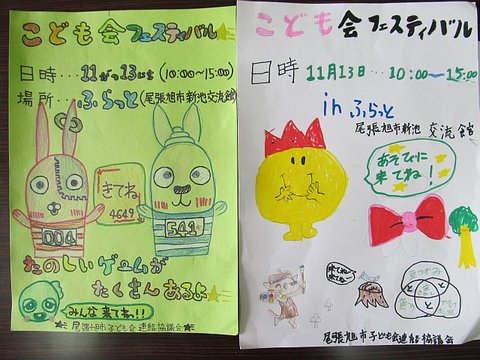 こども会フェスティバル
日時…11月13日(日)(10:00〜15:00)
場所…ふらっと(尾張旭市新池交流館)
きてね
4649
004
541
たのしいゲームが
たくさんあるよ
みんな来てねっ!!
尾張旭市子ども会連絡協議会
こども会フェスティバル
日時 11月13日…10:00〜15:00
in ふらっと
尾張旭市新池 交流館
あそびに
来てね!
来てね〜
尾張旭市子ども会連絡協議会